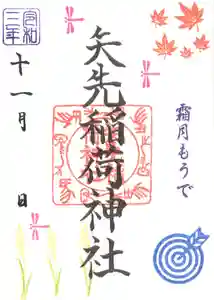 矢先稲荷神社
霜月もうで
令和
三年
十一月 日